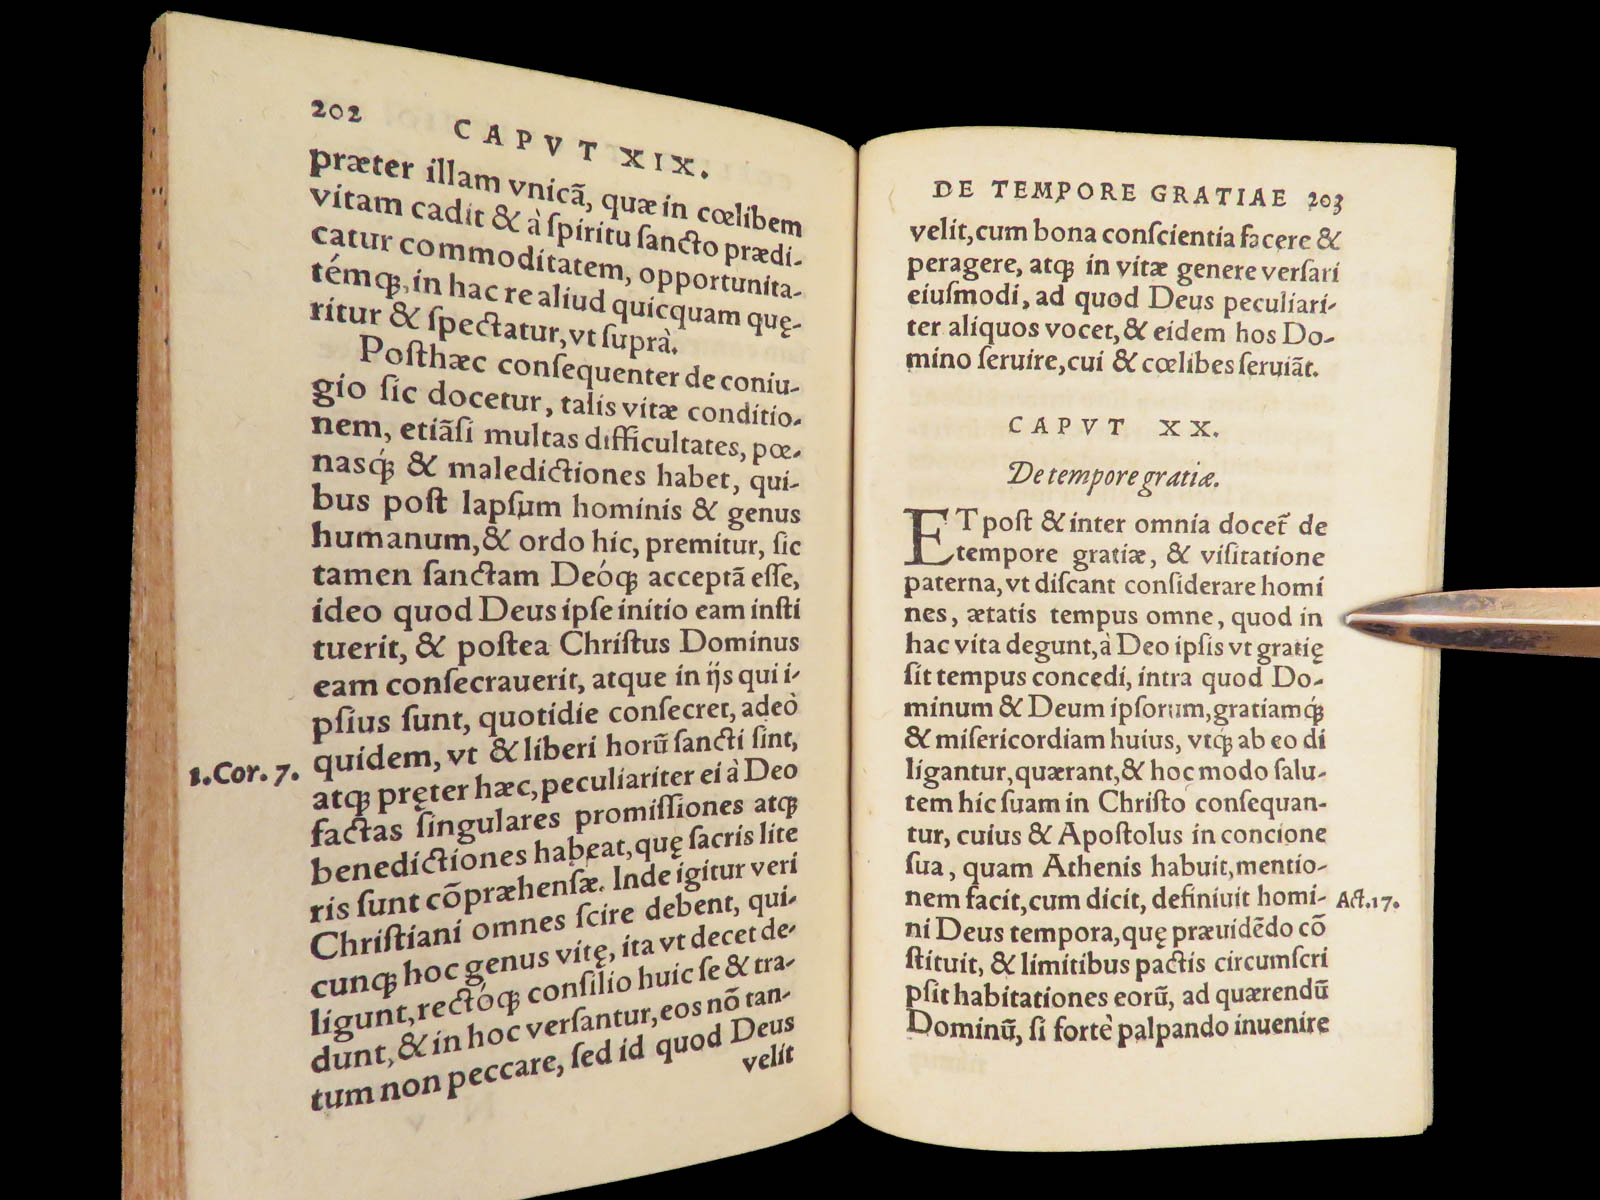 202
CAPVT XIX.
præter illam vnicã, quæ in cœlibem
vitam cadit & à ſpiritu ſancto prædi-
catur commoditatem, opportunita-
témq́;, in hac re aliud quicquam quę-
ritur & ſpectatur, vt ſuprà.
Poſthæc conſequenter de coniu-
gio ſic docetur, talis vitæ conditio-
nem, etiãſi multas difficultates, pœ-
nasq́; & maledictiones habet, qui-
bus poſt lapſum hominis & genus
humanum, & ordo hic, premitur, ſic
tamen ſanctam Deóq; acceptã eſſe,
ideo quod Deus ipſe initio eam inſti
tuerit, & poſtea Chriſtus Dominus
eam conſecrauerit, atque in ijs qui i-
pſius ſunt, quotidie conſecret, adeò
quidem, vt & liberi horũ ſancti ſint,
1.Cor. 7.
atq; pręter hæc, peculiariter ei à Deo
factas ſingulares promiſſiones atq;
benedictiones habeat, quę ſacris lite
ris ſunt cõpræhenſæ. Inde igitur veri
Chriſtiani omnes ſcire debent, qui-
cunq; hoc genus vitę, ita vt decet de-
ligunt, rectóq; conſilio huic ſe & tra-
dunt, & in hoc verſantur, eos nõ tan-
tum non peccare, ſed id quod Deus
velit
DE TEMPORE GRATIAE 203
velit, cum bona conſcientia facere &
peragere, atq; in vitæ genere verſari
eiuſmodi, ad quod Deus peculiari-
ter aliquos vocet, & eidem hos Do-
mino ſeruire, cui & cœlibes ſeruiãt.
CAPVT XX.
De tempore gratiæ.
ET poſt & inter omnia docet̃ de
tempore gratiæ, & viſitatione
paterna, vt diſcant conſiderare homi
nes, ætatis tempus omne, quod in
hac vita degunt, à Deo ipſis vt gratię
ſit tempus concedi, intra quod Do-
minum & Deum ipſorum, gratiamq́;
& miſericordiam huius, vtq́; ab eo di
ligantur, quærant, & hoc modo ſalu-
tem hic ſuam in Chriſto conſequan-
tur, cuius & Apoſtolus in concione
ſua, quam Athenis habuit, mentio-
nem facit, cum dicit, definiuit homi-
Act.17.
ni Deus tempora, quę præuidẽdo cõ
ſtituit, & limitibus pactis circumſcri
pſit habitationes eorũ, ad quærendũ
Dominũ, ſi fortè palpando inuenire